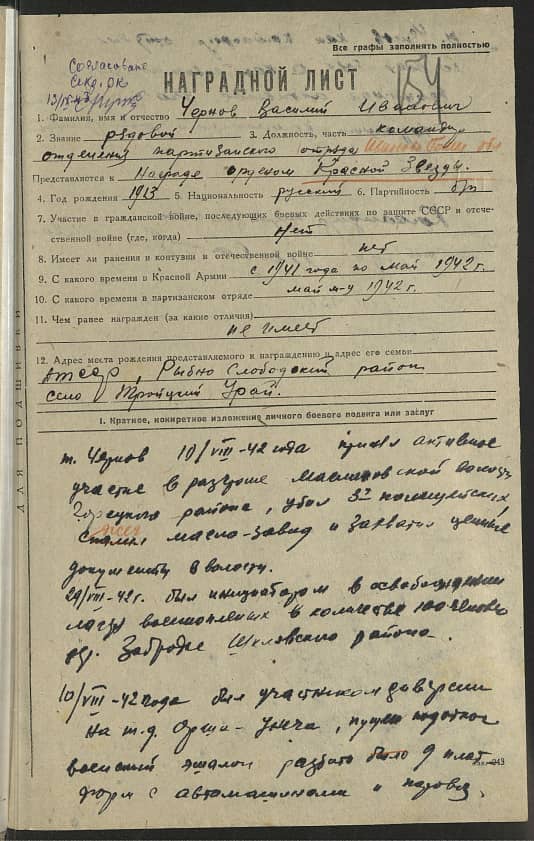 Все графы заполнять полностью
Согласовано
секр. РК
НАГРАДНОЙ ЛИСТ
1. Фамилия, имя и отчество Чернов Василий Иванович
2. Звание рядовой 3. Должность, часть командир
отделения партизанского отряда
Представляется к Награде орденом Красной Звезды.
4. Год рождения 1913 5. Национальность русский 6. Партийность б/п
7. Участие в гражданской войне, последующих боевых действиях по защите СССР и отече-
ственной войне (где, когда) Нет
8. Имеет ли ранения и контузии в отечественной войне нет
9. С какого времени в Красной Армии с 1941 года по май 1942 г.
10. С какого времени в партизанском отряде май м-ц 1942 г.
11. Чем ранее награжден (за какие отличия)
не имеет
12. Адрес места рождения представляемого к награждению и адрес его семьи
АТССР, Рыбно Слободский район
село Троицкий Урай.
I. Краткое, конкретное изложение личного боевого подвига или заслуг
ДЛЯ ПОДШИВКИ
т. Чернов 10/VIII-42 года принял активное
участие в разгроме Масалаковской волости
Горецкого района, убил 3х полицейских,
сжег масло-завод и захватил ценные
документы в волости.
29/VIII-42г. был инициатором в освобождении
лагеря военнопленных в количестве 100 человек
дер. Забродье Шкловского района.
10/VIII-42 года был участником диверсии
на ж.д. Орша - Унеча, пущен под откос
воинский эшалон разбито было 9 плат
форм с автомашинами и паровоз.